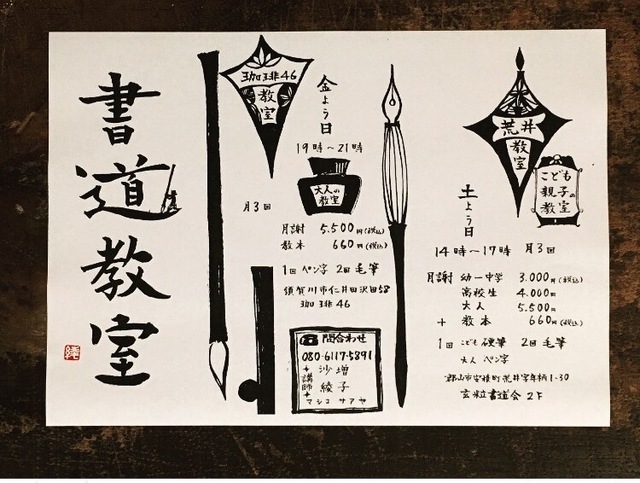 書道教室
珈琲46
教室
金よう日
19時～21時
大人の
教室
月3回
月謝 5.500円(税込)
教本 660円(税込)
1回 ペン字 2回 毛筆
須賀川市仁井田沢田58
珈琲46
問合わせ
080-6117-5891
講師
沙増
綾子
マシコ サアヤ
荒井
教室
こども
親子の
教室
土よう日
14時～17時 月3回
月謝 幼ー中学 3.000円(税込)
高校生 4.000円
大人 5.500円
+ 教本 660円(税込)
1回 こども 硬筆 2回 毛筆
大人 ペン字
郡山市安積町荒井字年柄1-30
玄粒書道会 2F